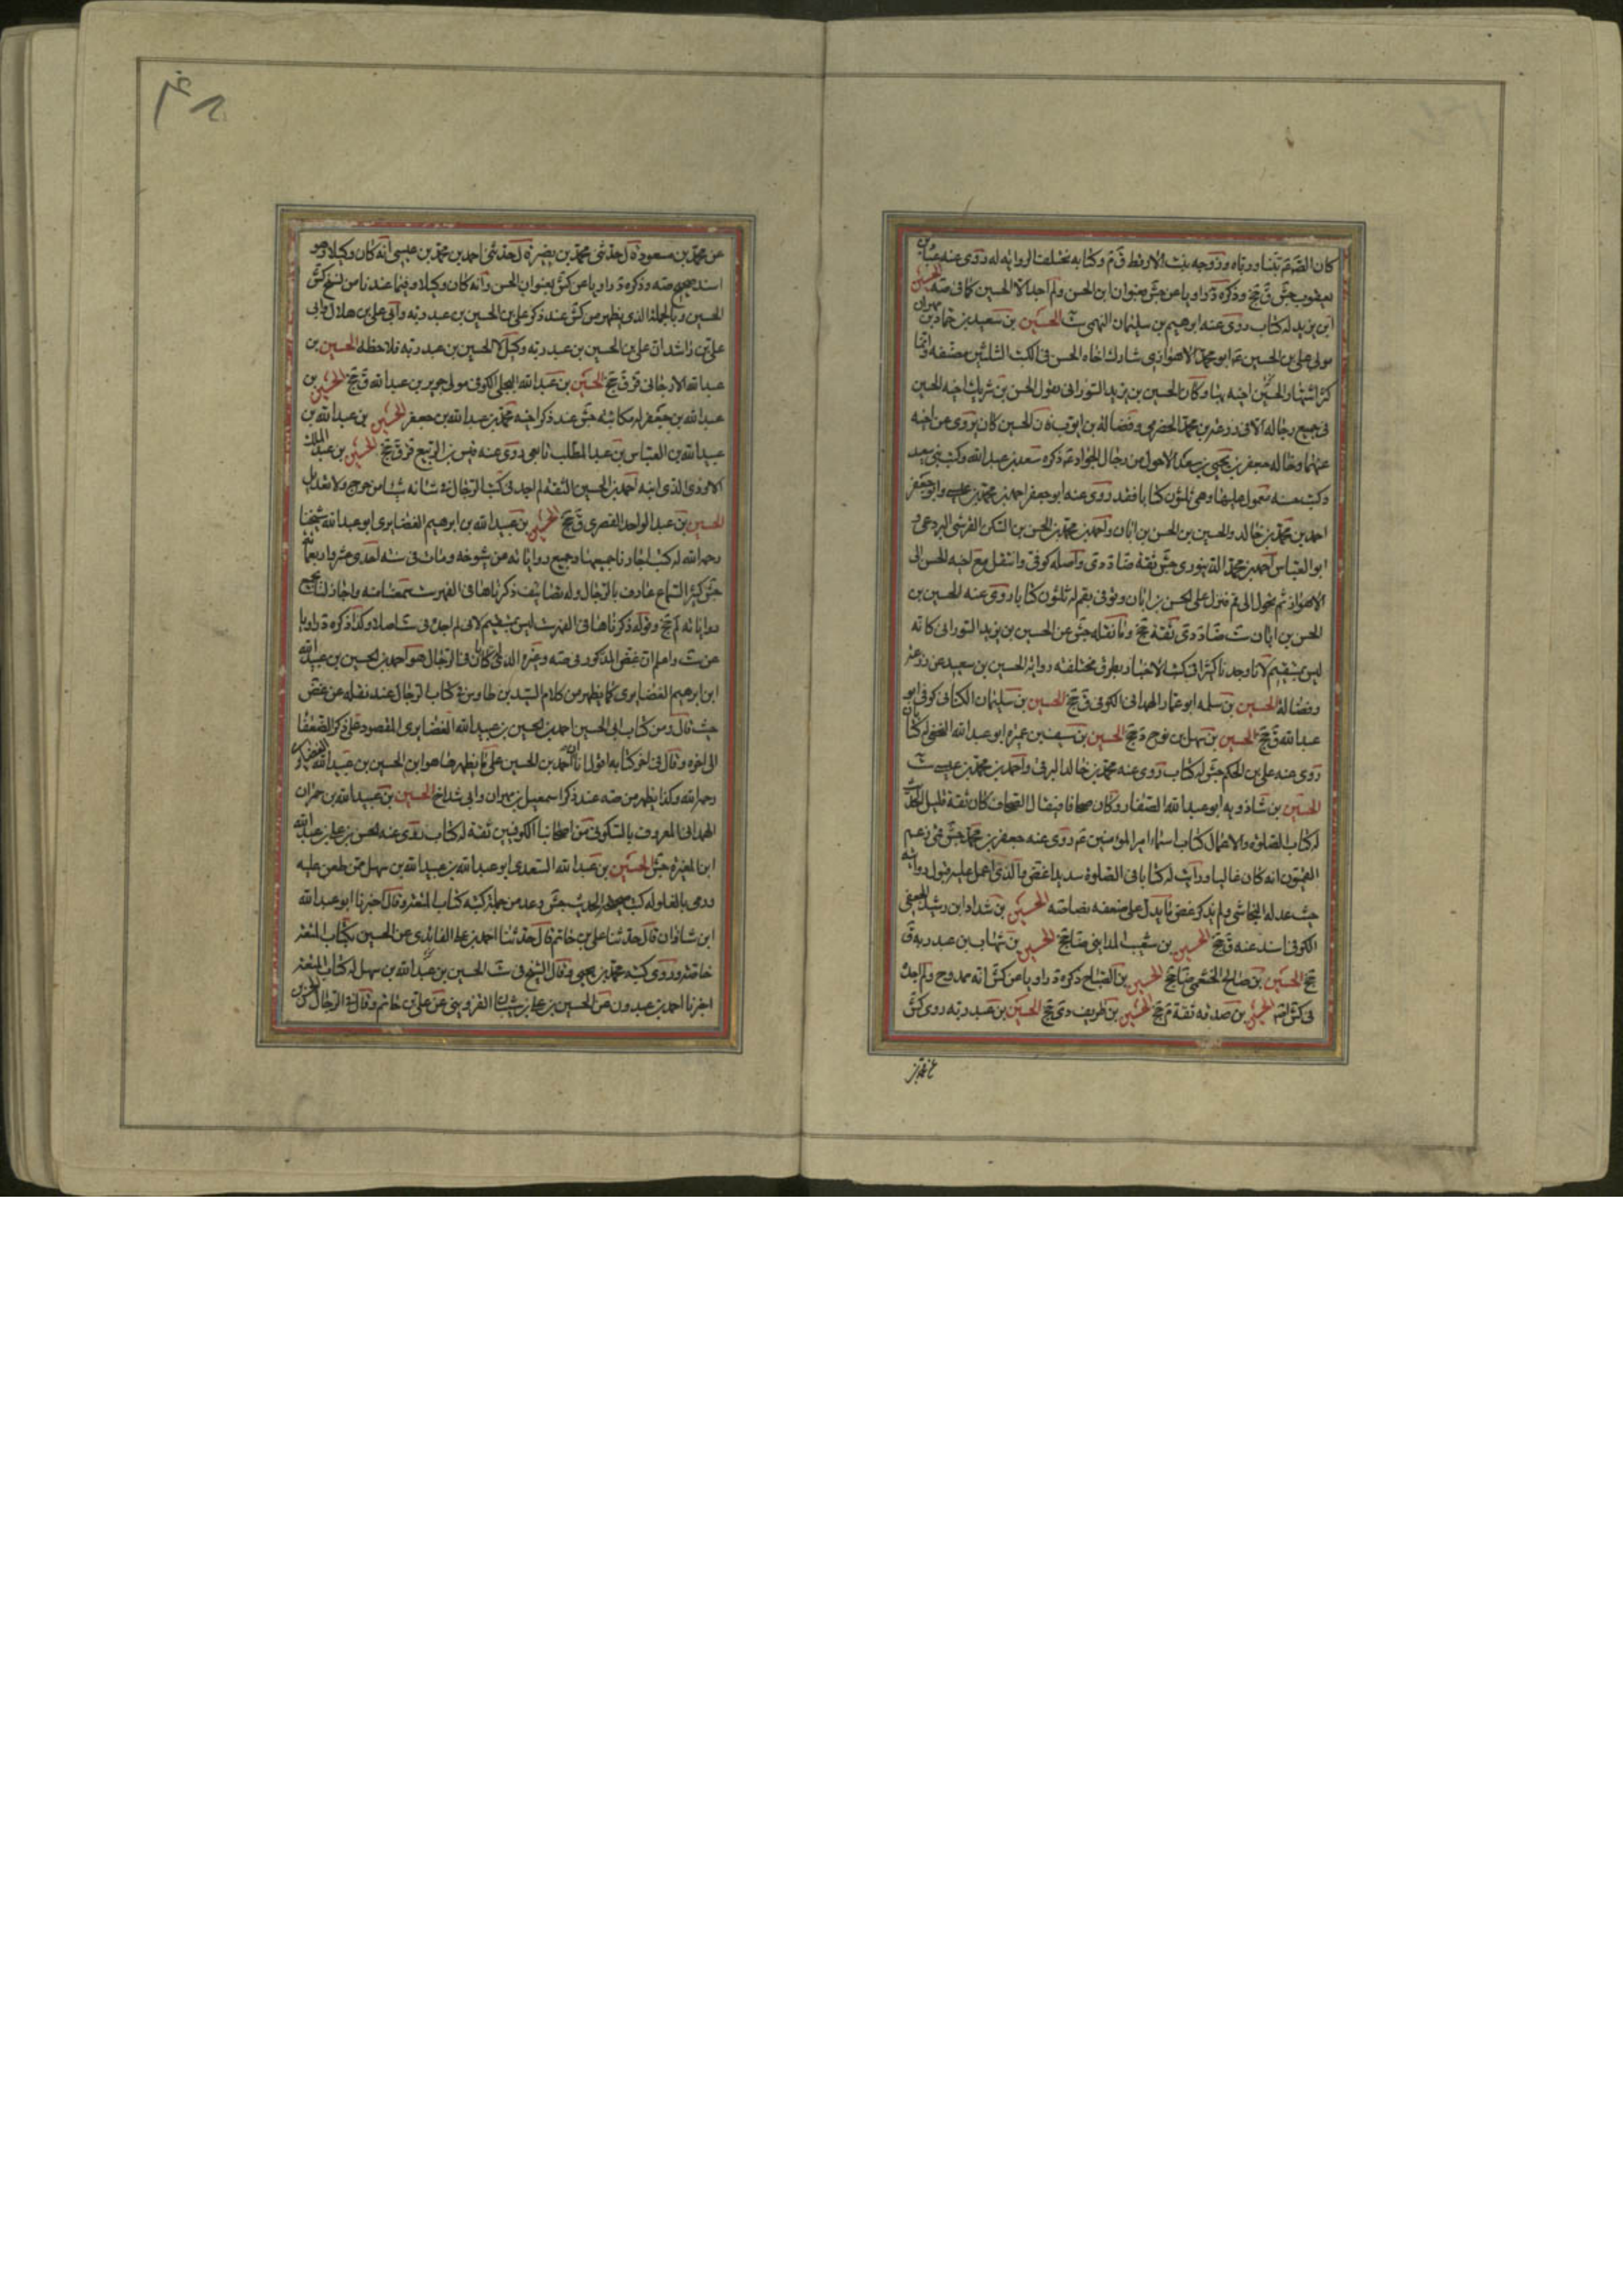 كان الصادق ع تبناه ورباه وزوجه بنت الارقط ق م وكتابه تختلف الرواية له روى عنه عباد بن
يعقوب جش ق جخ وذكره د راويا عن جش بعنوان ابن الحسن ولم اجد الا الحسين كما في صه الحسين
ابن يزيد له كتاب روى عنه ابرهيم بن سليمان النهمي ست الحسين بن سعيد بن حماد بن مهران
مولى علي بن الحسين ع ابو محمد الاهوازي شارك اخاه الحسن في الكتب الثلثين مصنفه وانما
كثر اشتهار الحسين اخيه بها وكان الحسين بن يزيد السوراني يقول الحسن بن شريك اخيه الحسين
في جميع رجاله الا في زرعة بن محمد الحضرمي وفضالة بن ايوب فان الحسين كان يروي عن اخيه
عنهما وخاله جعفر بن يحيى بن سعد الاحول من رجال الجواد ع ذكره سعد بن عبد الله وكتب بني سعيد
كتب حسنة معمول عليها وهي ثلثون كتابا فقد روى عنه ابو جعفر احمد بن محمد بن عيسى وابو جعفر
احمد بن محمد بن خالد والحسين بن الحسن بن ابان واحمد بن محمد بن الحسن بن السكن القرشي البردعي و
ابو العباس احمد بن محمد الدينوري جش ثقة ضا د دى واصله كوفي وانتقل مع اخيه الحسن الى
الاهواز ثم تحول الى قم فنزل على الحسن بن ابان وتوفي بقم له ثلثون كتابا روى عنه الحسين بن
الحسن بن ابان ست ضا د دى ثقة جخ وما نقله جش عن الحسين بن يزيد السوراني كانه
ليس بمستقيم لانا وجدنا كثيرا في كتبه الاخبار بطرق مختلفة رواية الحسين بن سعيد عن زرعة
وفضالة الحسين بن سلمه ابو عمار الهمداني الكوفي ق جخ الحسين بن سليمان الكناني كوفي ابو
عبد الله ق جخ الحسين بن سهل بن نوح د جخ الحسين بن سيف بن عميرة ابو عبد الله النخعي له كتابان
روى عنه علي بن الحكم جش له كتاب روى عنه محمد بن خالد البرقي واحمد بن محمد بن عيسى ست
الحسين بن شاذويه ابو عبد الله الصفار وكان صحافا فيقال الصحاف كان ثقة قليل الحديث
له كتاب الصلوة والاعمال كتاب اسماء امير المؤمنين ع روى عنه جعفر بن محمد جش قمي زعم
القميون انه كان غاليا ورايت له كتابا في الصلوة سديدا غض والذي اعمل عليه قبول روايته
حيث عدله النجاشي ولم يذكر غض ما يدل على ضعفه نصا صه الحسين بن شداد ابن رشيد الجعفي
الكوفي اسند عنه ق جخ الحسين بن شعيب المدايني ضا جخ الحسين بن شهاب بن عبد ربه ق
جخ الحسين بن صالح الخثعمي ضا جخ الحسين بن الصباح ذكره د راويا عن كش انه ممدوح ولم اجد
في كش اثره الحسين بن صدقه ثقة م جخ الحسين بن ظريف دى جخ الحسين بن عبد ربه روى كش
عن محمد بن
عن محمد بن مسعود قال حدثني محمد بن نصير قال حدثني احمد بن محمد بن عيسى انه كان وكيلا وهو
سند صحيح صه وذكره د راويا عن كش بعنوان الحسن وانه كان وكيلا وفيما عندنا من نسخ كش
الحسين وبالجملة الذي يظهر من كش عند ذكر علي بن الحسين بن عبد ربه وابي علي بن هلال وابي
علي بن راشد ان علي بن الحسين بن عبد ربه وكيل لا الحسين بن عبد ربه فلاحظه الحسين بن
عبد الله الارجاني قر ق جخ الحسين بن عبد الله البجلي الكوفي مولى جرير بن عبد الله ق جخ الحسين بن
عبد الله بن جعفر له مكاتبة جش عند ذكر اخيه محمد بن عبد الله بن جعفر الحسين بن عبد الله بن
عبيد الله بن العباس بن عبد المطلب تابعي روى عنه قيس بن الربيع قر ق جخ الحسين بن عبد الملك
الاودي الذي ابنه احمد بن الحسين الثقة لم اجد في كتب الرجال في شانه شيئا من جرح ولا تعديل
الحسين بن عبد الواحد القصري ق جخ الحسين بن عبيد الله بن ابرهيم الغضايري ابو عبد الله شيخنا
رحمه الله له كتب اجازنا جميعها وجميع رواياته عن شيوخه ومات في سنة احدى عشر واربعمائة
جش كثير السماع عارف بالرجال وله تصانيف ذكرناها في الفهرست سمعنا منه واجاز لنا جميع
رواياته لم جخ وقوله ذكرناها في الفهرست ليس بمستقيم لاني لم اجده في ست اصلا وكذا ذكره د راويا
عن ست واعلم ان غض المذكور في صه وغيره الذي له كتابان في الرجال هو احمد بن الحسين بن عبيد الله
ابن ابرهيم الغضايري كما يظهر من كلام السيد بن طاوس في كتاب الرجال عند نقله عن غض
حيث قال ومن كتاب ابي الحسين احمد بن الحسين بن عبيد الله الغضايري المقصود على ذكر الضعفا
الى اخره وقال في اخر كتابه اقول ان احمد بن الحسين على ما يظهر هنا هو ابن الحسين بن عبيد الله الغضايري
رحمه الله وكذا يظهر من صه عند ذكر اسمعيل بن مهران وابي شداخ الحسين بن عبيد الله بن حمران
الهمداني المعروف بالسكوني من اصحابنا الكوفيين ثقة له كتاب روى عنه الحسن بن علي بن عبد الله
ابن المغيرة جش الحسين بن عبيد الله السعدي ابو عبد الله بن عبيد الله بن سهل ممن طعن عليه
ورمي بالغلو له كتب صحيحة الحديث جش وعد من جملة كتبه كتاب المتعة وقال اخبرنا ابو عبد الله
ابن شاذان قال حدثنا علي بن حاتم قال حدثنا احمد بن علي الفائدي عن الحسين بكتاب المتعة
خاصة وروى كتبه محمد بن يحيى وقال الشيخ في ست الحسين بن عبيد الله بن سهل له كتاب المتعة
اخبرنا احمد بن عبدون عن الحسين بن علي بن شيبان القزويني عن علي بن حاتم وقال في الرجال الحسين